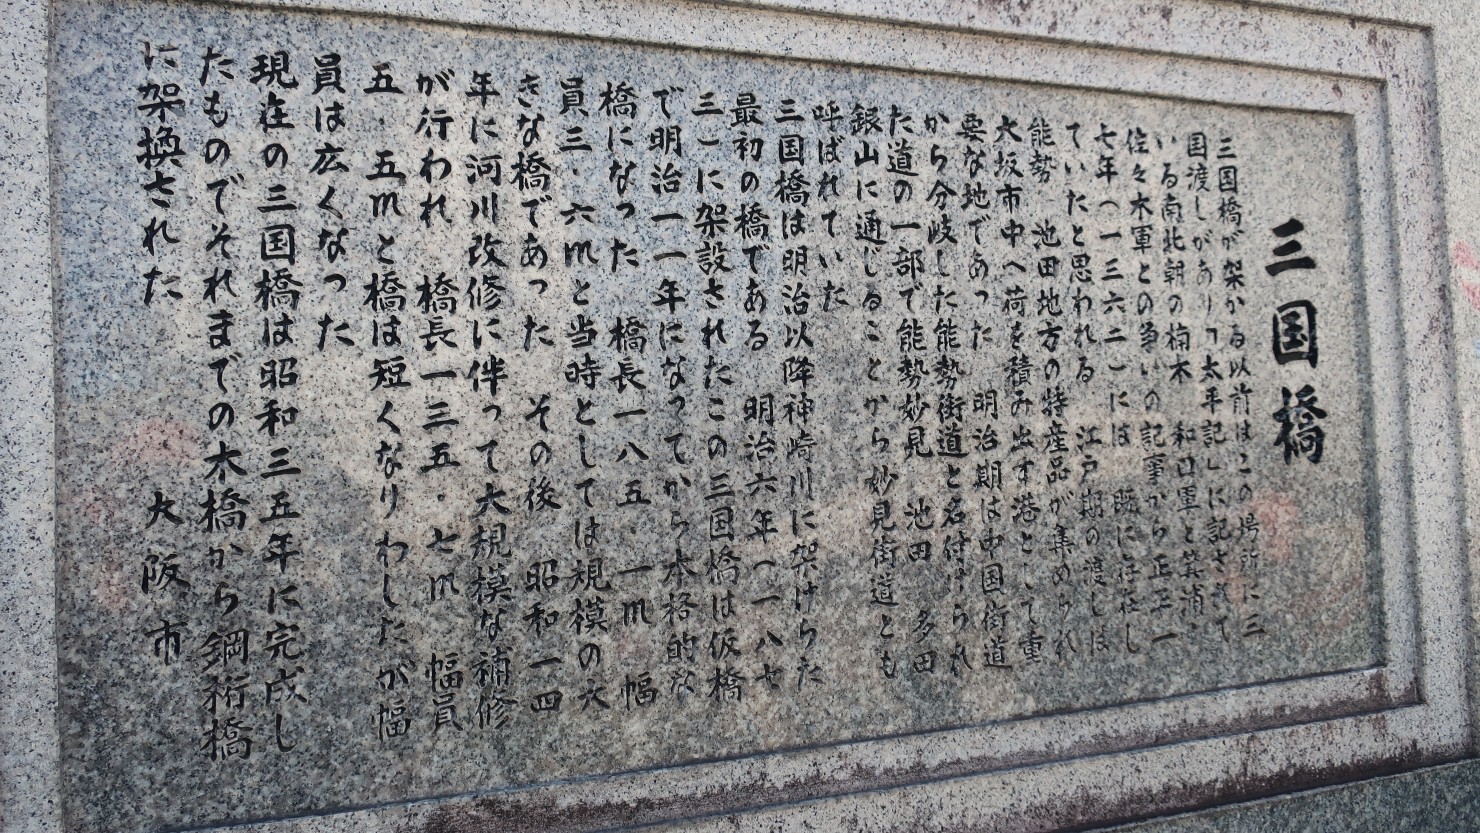 三国橋
三国橋が架かる以前はこの場所に三
国渡しがあり「太平記」に記されて
いる南北朝の楠木 和田軍と箕浦
佐々木軍との争いの記事から正平一
七年(一三六二)には 既に存在し
ていたと思われる 江戸期の渡しは
能勢 池田地方の特産品が集められ
大坂市中へ荷を積み出す港として重
要な地であった 明治期は中国街道
から分岐した能勢街道と名付けられ
た道の一部で能勢妙見 池田 多田
銀山に通じることから妙見街道とも
呼ばれていた
三国橋は明治以降神崎川に架けられた
最初の橋である 明治六年(一八七
三)に架設されたこの三国橋は仮橋
で明治一一年になってから本格的な
橋になった 橋長一八五.一m 幅
員三.六mと当時としては規模の大
きな橋であった その後 昭和一四
年に河川改修に伴って大規模な補修
が行われ 橋長一三五.七m 幅員
五.五mと橋は短くなりわしたが幅
員は広くなった
現在の三国橋は昭和三五年に完成し
たものでそれまでの木橋から鋼桁橋
に架換された 大阪市